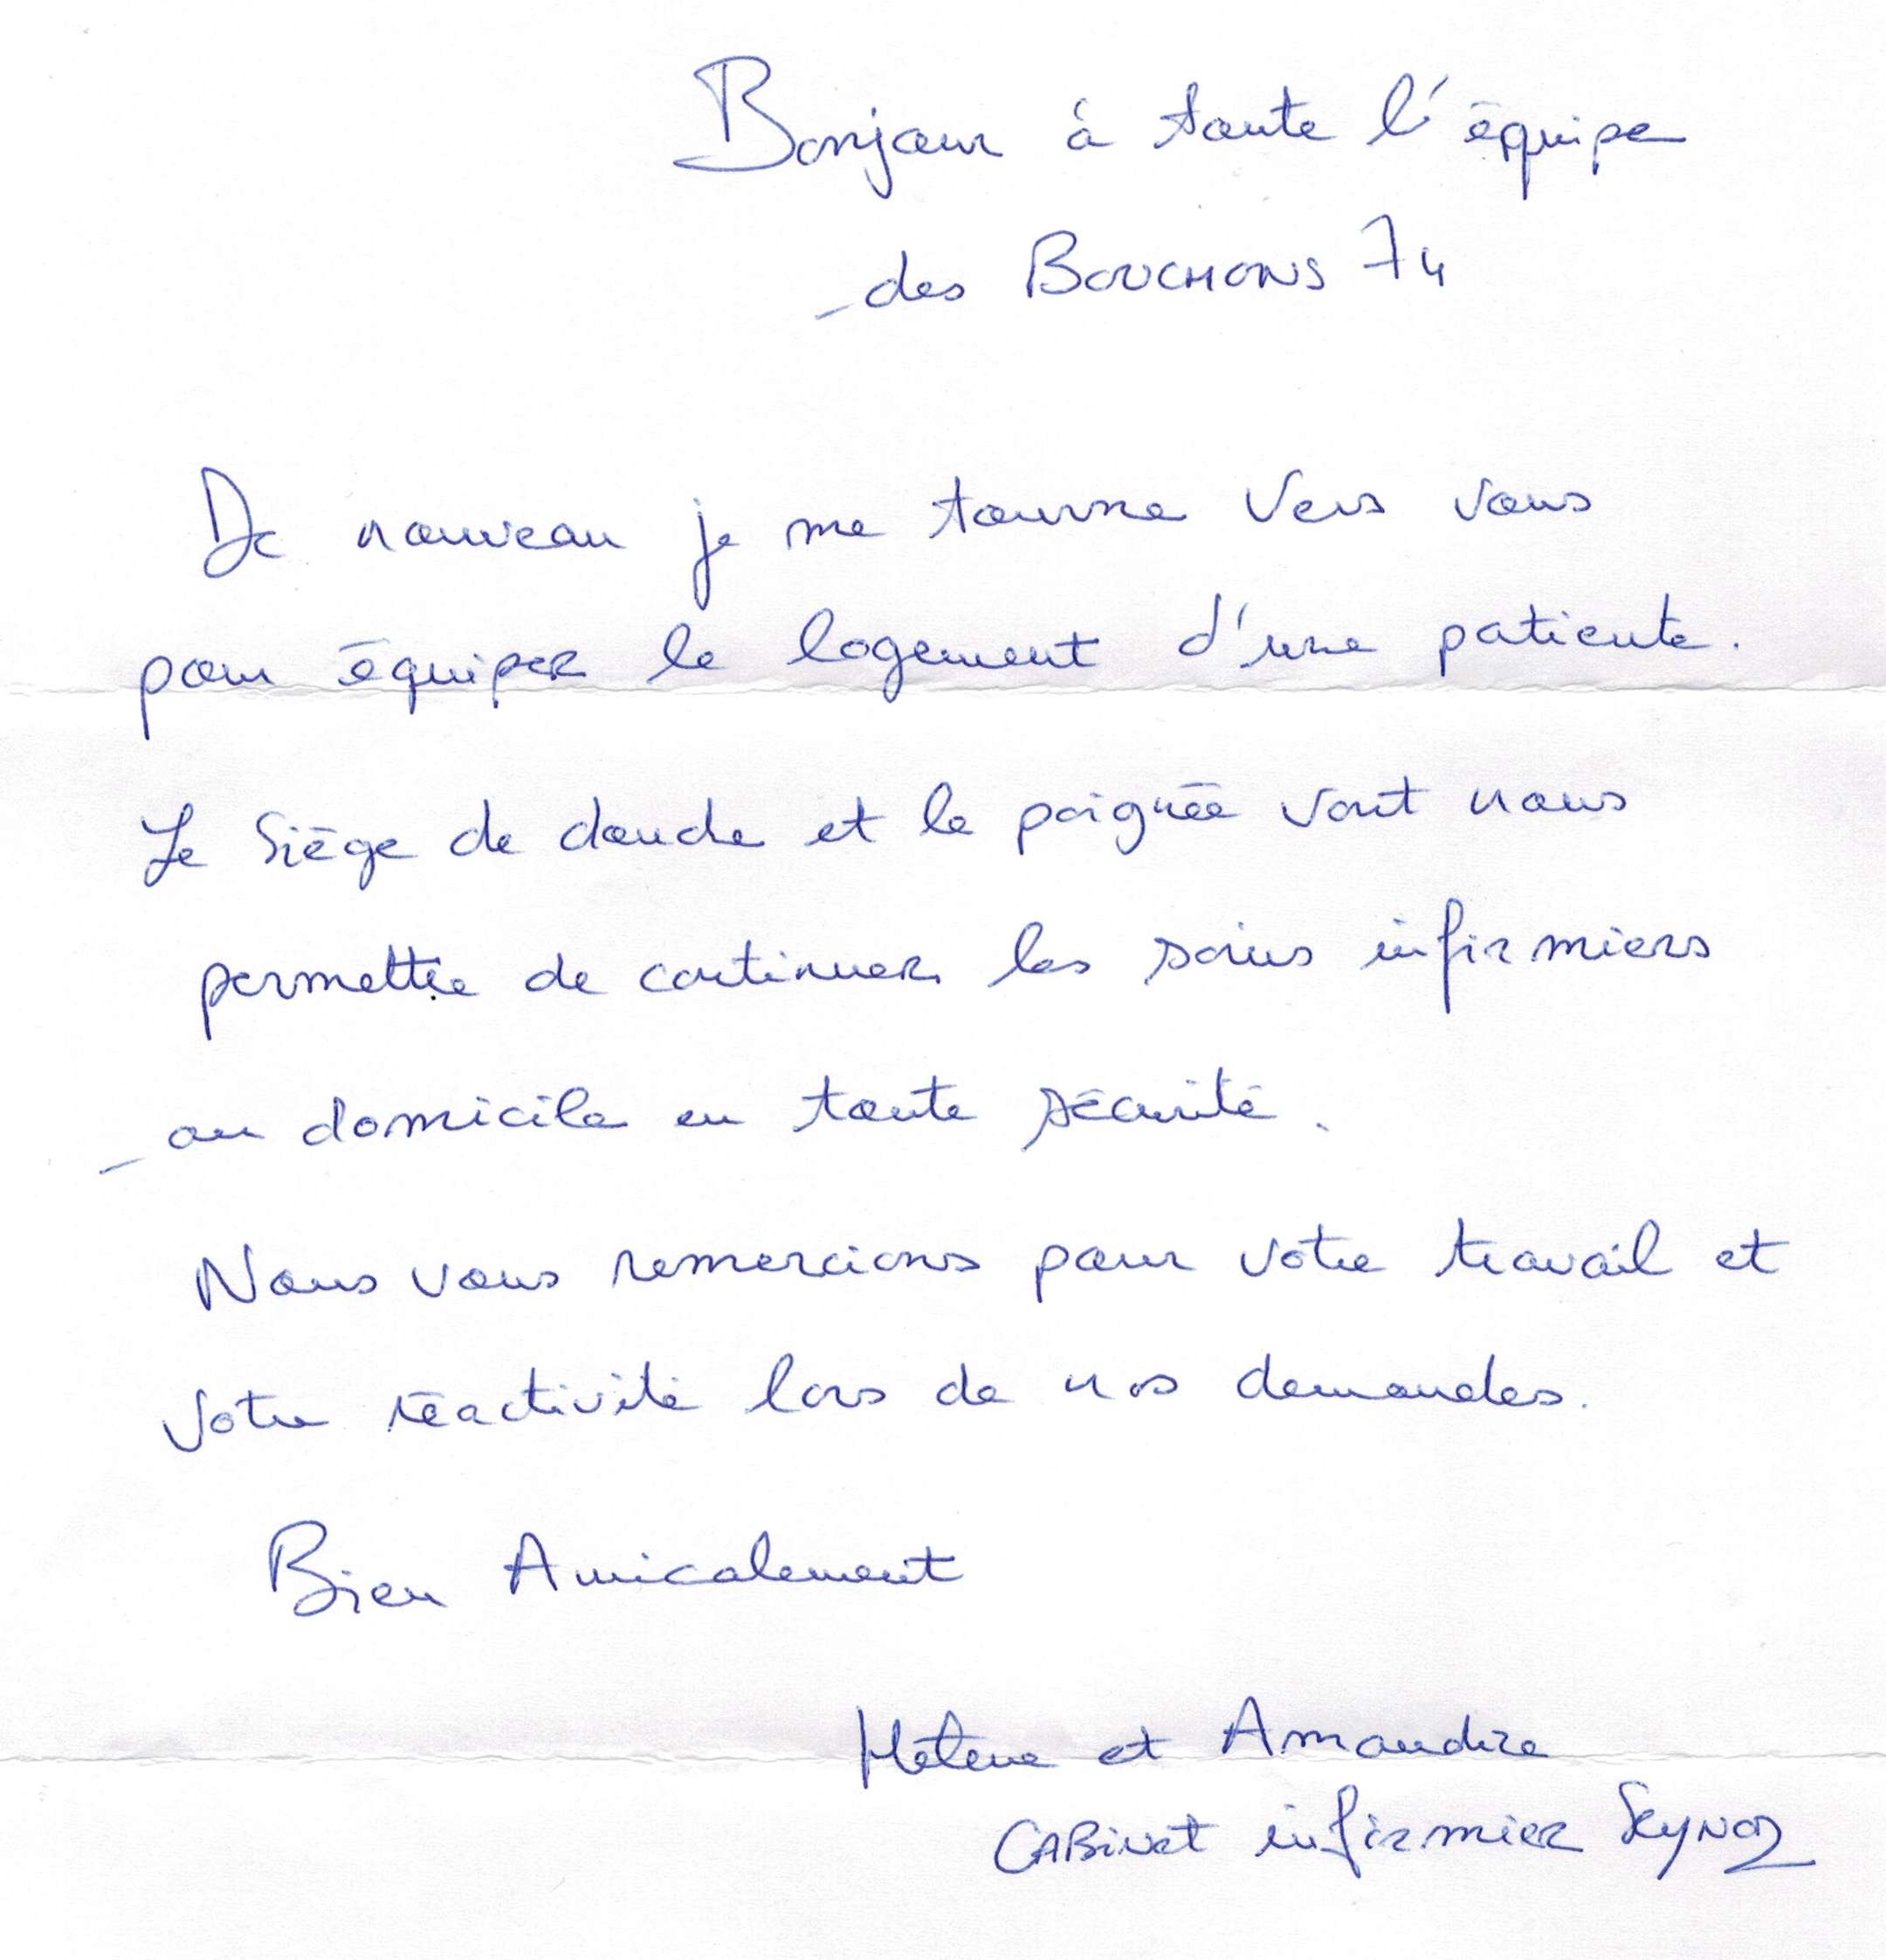 Bonjour à toute l'équipe
des BOUCHONS 74
De nouveau je me tourne vers vous
pour équiper le logement d'une patiente.
Le siège de douche et la poignée vont nous
permettre de continuer les soins infirmiers
au domicile en toute sécurité.
Nous vous remercions pour votre travail et
votre réactivité lors de nos demandes.
Bien Amicalement
Hélène et Amandine
CABinet infirmier SEYNOD